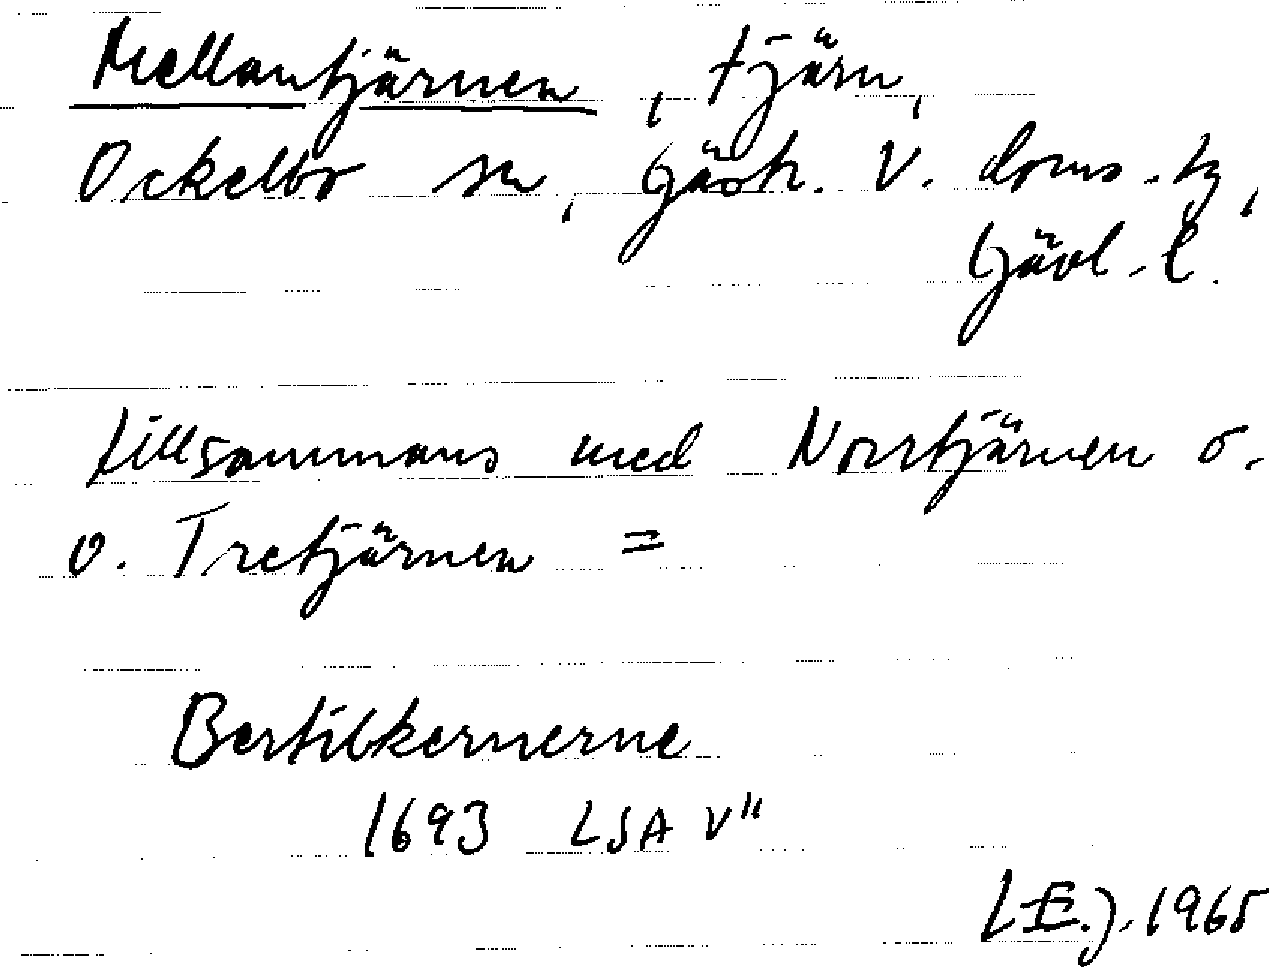 Mellantjärnen, tjärn,
Ockelbo sn, Gästr. V. doms.-tg,
Gävl.-l.
tillsammans med Norrtjärnen o.
o. Tretjärnen =
Bertilkernerne
1693 LSA V"
1965